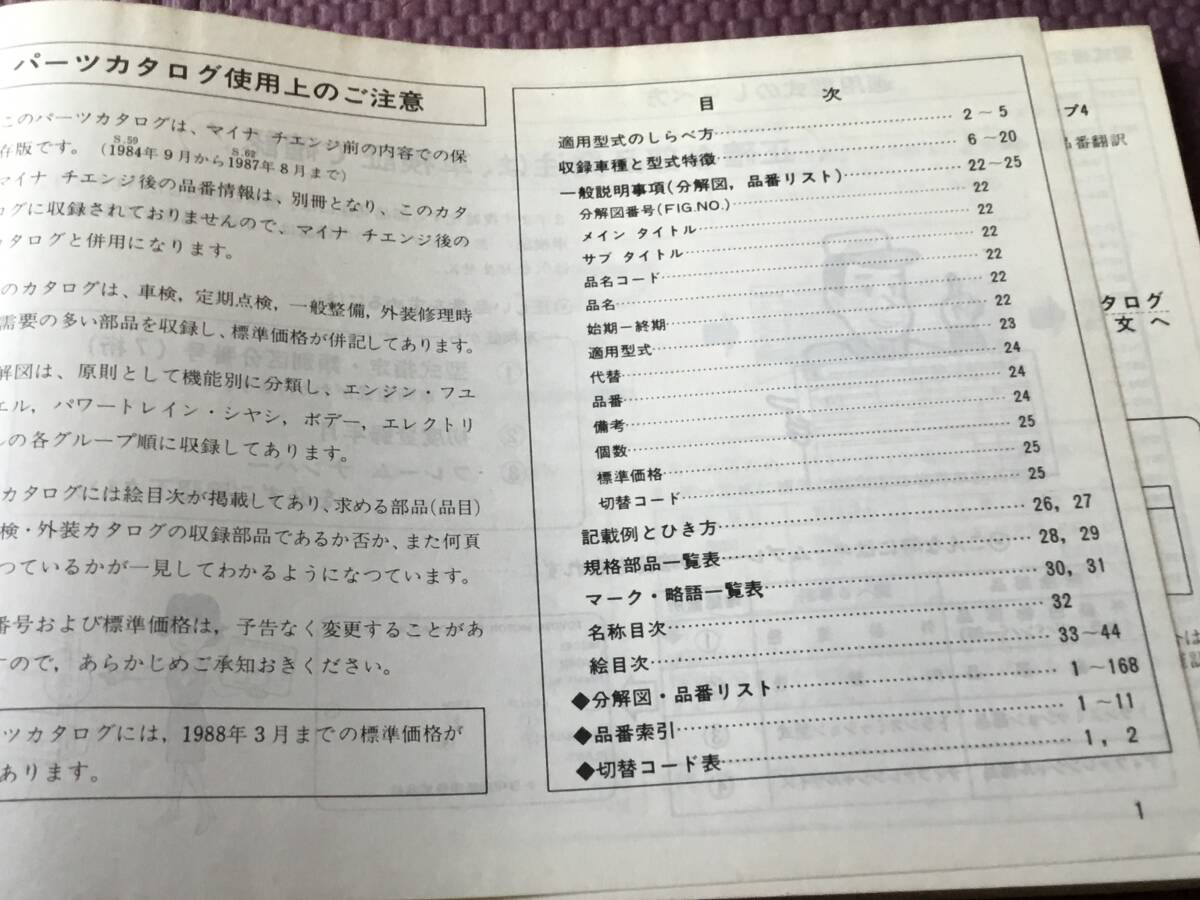 パーツカタログ使用上のご注意
このパーツカタログは、マイナ チエンジ前の内容での保
存版です。(1984年9月から1987年8月まで)
S.59 S.62
マイナ チエンジ後の品番情報は、別冊となり、このカタ
ログに収録されておりませんので、マイナ チエンジ後の
カタログと併用になります。
のカタログは、車検，定期点検，一般整備，外装修理時
需要の多い部品を収録し、標準価格が併記してあります。
解図は、原則として機能別に分類し、エンジン・フユ
エル，パワートレイン・シヤシ，ボデー，エレクトリ
ルの各グループ順に収録してあります。
カタログには絵目次が掲載してあり、求める部品(品目)
検・外装カタログの収録部品であるか否か、また何頁
つているかが一見してわかるようになつています。
番号および標準価格は，予告なく変更することがあ
すので，あらかじめご承知おきください。
ツカタログには，1988年3月までの標準価格が
あります。
目 次
適用型式のしらべ方 2～5
収録車種と型式特徴 6～20
一般説明事項(分解図，品番リスト) 22～25
分解図番号(FIG.NO.) 22
メイン タイトル 22
サブ タイトル 22
品名コード 22
品名 22
始期－終期 22
適用型式 23
代替 24
品番 24
備考 24
個数 25
標準価格 25
切替コード 25
記載例とひき方 26，27
規格部品一覧表 28，29
マーク・略語一覧表 30，31
名称目次 32
絵目次 33～44
◆分解図・品番リスト 1～168
◆品番索引 1～11
◆切替コード表 1，2
1
プ4
品番翻訳
タログ
文へ